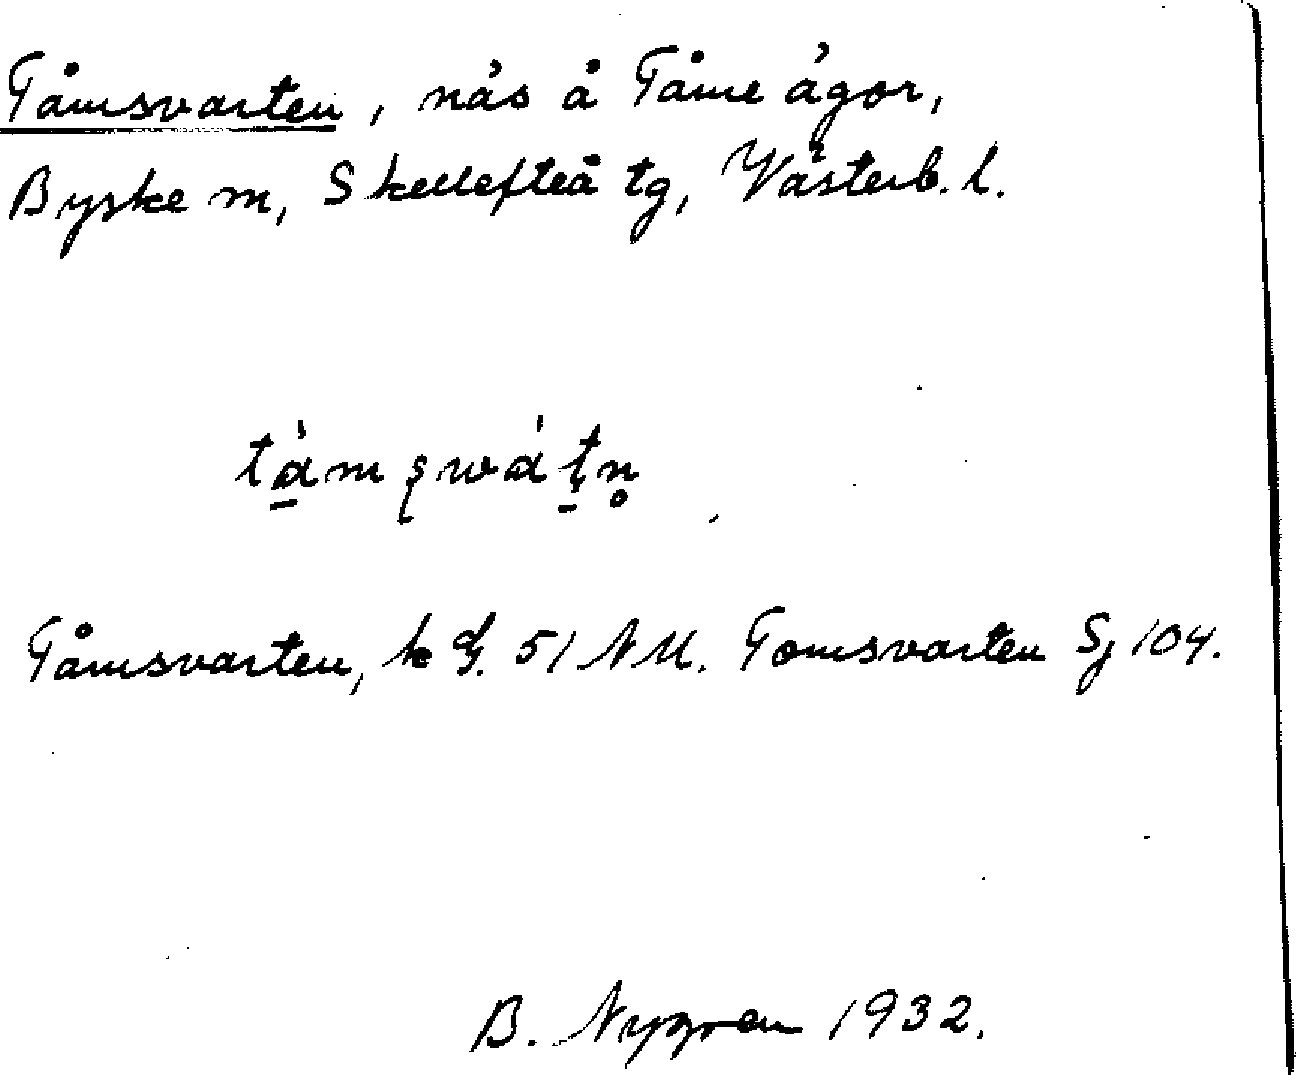 Tåmsvarten, näs å Tåme ägor,
Byske sn, Skellefteå tg, Västerb. l.
tàmswátn̥
Tåmsvarten, k G. 51 NM. Tomsvarten Sj 104.
B. Nygren 1932.